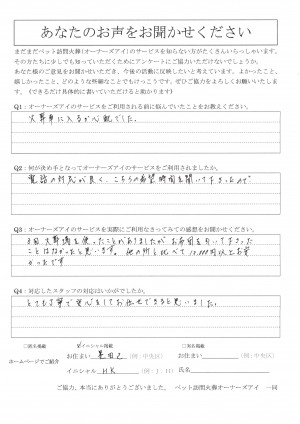 あなたのお声をお聞かせください
まだまだペット訪問火葬(オーナーズアイ)のサービスを知らない方がたくさんいらっしゃいます。
その方たちに少しでも知っていただくためにアンケートにご協力いただけないでしょうか。
あなた様のご意見をお聞かせいただき、今後の活動に反映したいと考えています。よかったこと、
嬉しかったこと、どのような些細なことでもけっこうです。ぜひご協力をよろしくお願いいたしま
す。(できるだけ具体的に書いていただけると助かります)
Q1：オーナーズアイのサービスをご利用される前に悩んでいたことをお教えください。
火葬車に入るか心配でした。
Q2：何が決め手となってオーナーズアイのサービスをご利用されましたか。
電話の対応が良く、こちらの希望時間を聞いて下さったので
Q3：オーナーズアイのサービスを実際にご利用なさってみての感想をお聞かせください。
3回火葬場を使ったことがありましたが お本団を引いて下さった
ことはなかったと思います。他の所と比べて10,000円以上お安
かったです
Q4：対応したスタッフの対応はいかがでしたか。
とても丁寧で安心をしてお任せできると思いました。
ホームページでご紹介
□匿名掲載
☑イニシャル掲載
お住まい 墨田区 (例：中央区)
イニシャル HK (例：J．H)
□実名掲載
お住まい (例：中央区)
氏名
ご協力、本当にありがとうございました。 ペット訪問火葬オーナーズアイ 一同